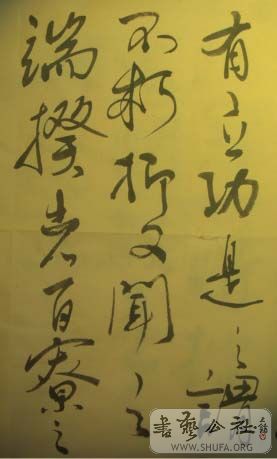 有立功是之謂
不朽抑又聞之
端揆者百寮之
書藝公社
WWW.SHUFA.ORG